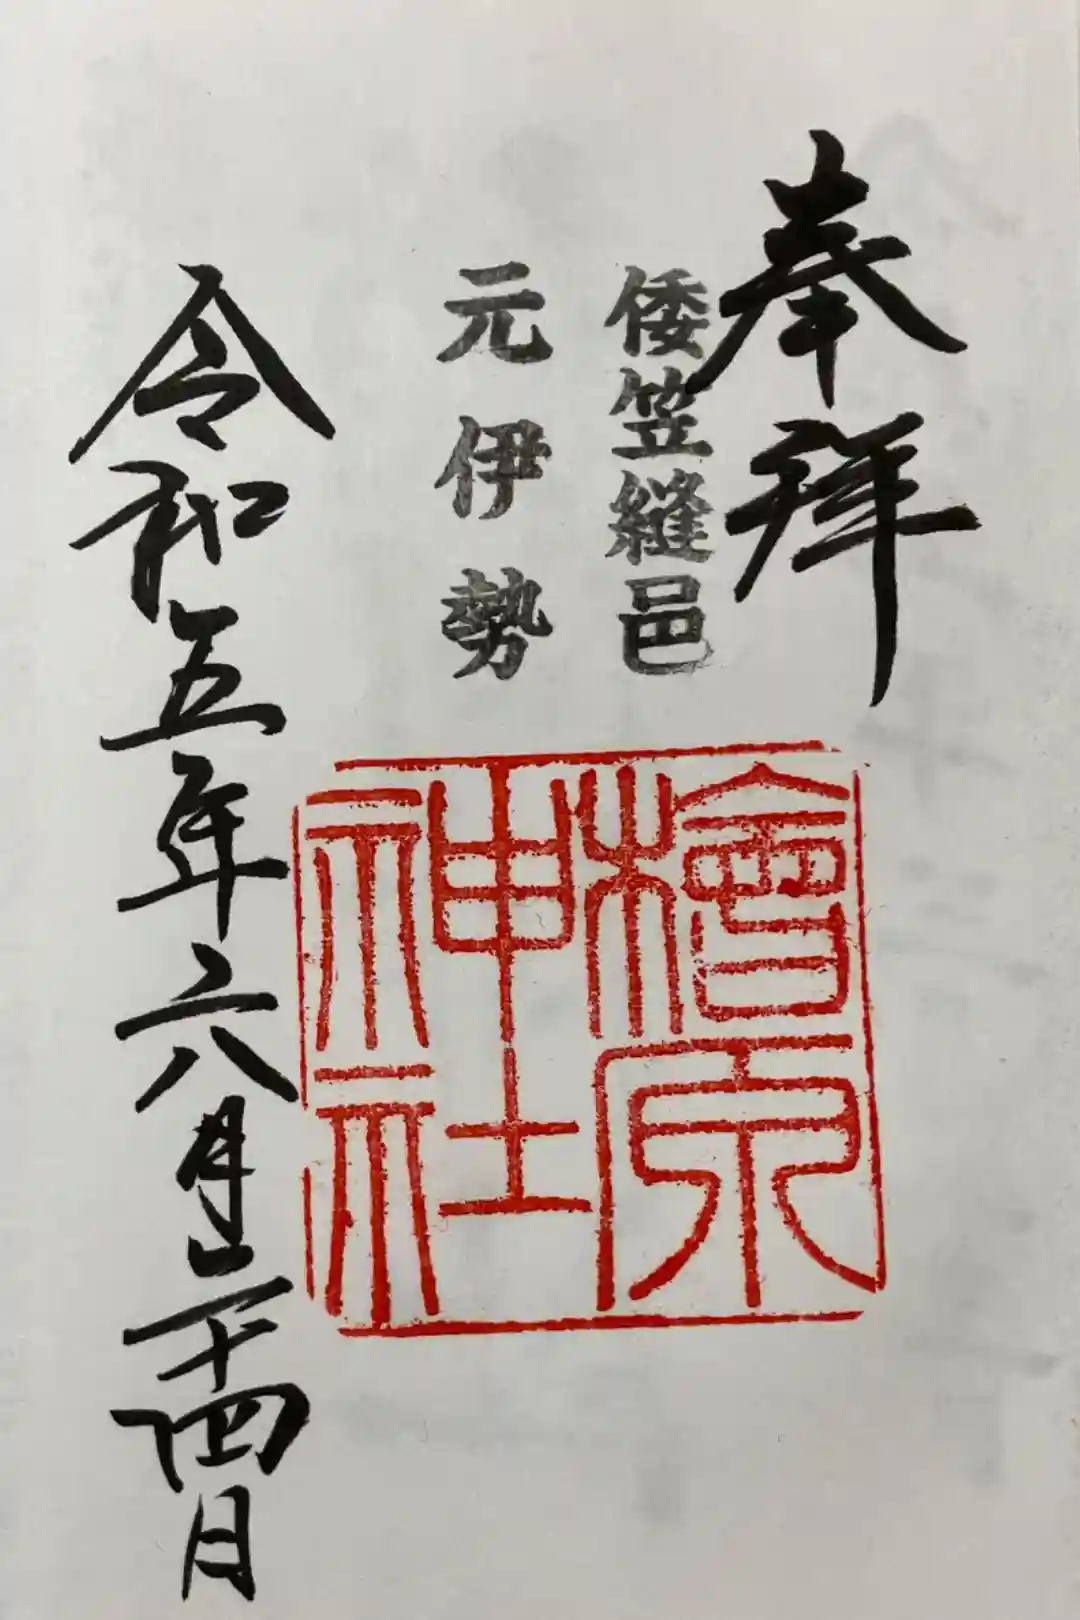 奉拜
倭笠縫邑
元伊勢
檜原
神社
令和五年六月二十四日